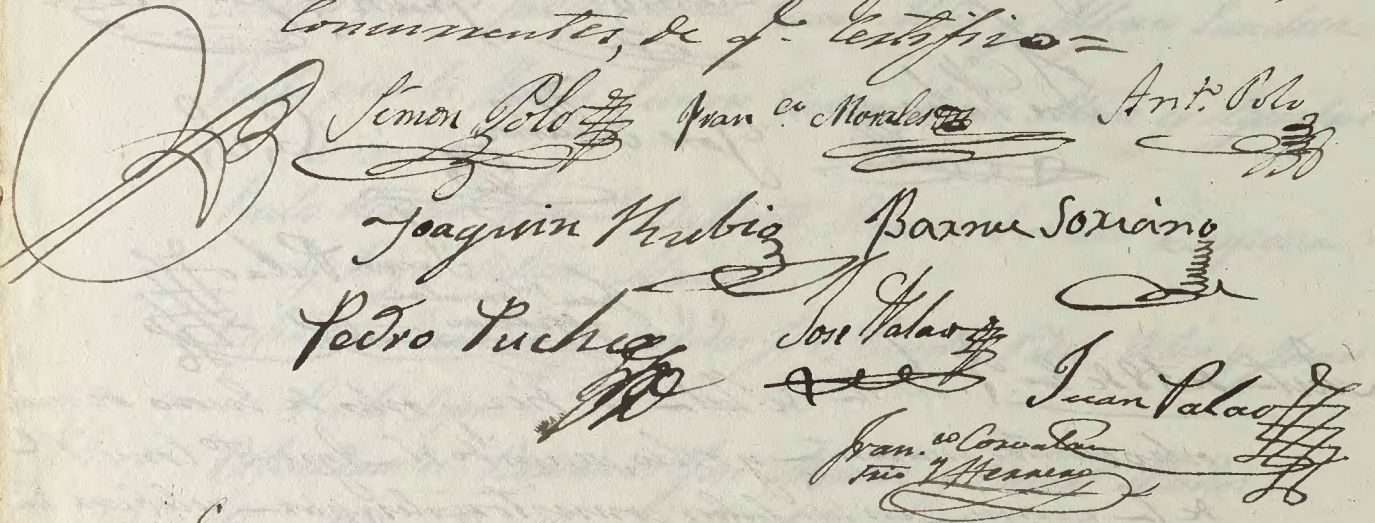 Concurrentes, de q.e Certifico=
Simon Polo Fran.co Morales Ant.o Polo
Joaquin Rubio Barnue Soriano
Pedro Puche Jose Palao
Juan Palao
Fran.co Corvalan
y Herrero